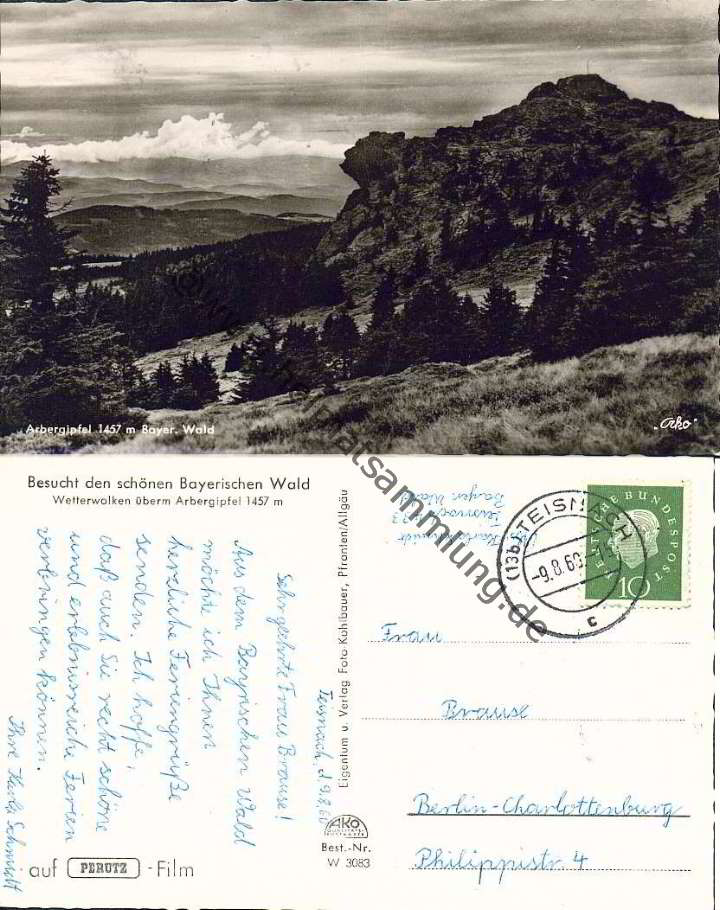 Arbergipfel 1457 m Bayer. Wald
„Arko"
Besucht den schönen Bayerischen Wald
Wetterwalken überm Arbergipfel 1457 m
Teisnach, d. 9.8.60
Sehr geehrte Frau Brause!
Aus dem Bayrischen Wald
möchte ich Ihnen
herzliche Feriengrüße
senden. Ich hoffe,
daß auch Sie recht schöne
und erlebnisreiche Ferien
verbringen können.
Ihre Karla Schmidt
auf PERUTZ -Film
Eigentum u. Verlag Foto Kühlbauer, Pfronten/Allgäu
AKO
Best.-Nr.
W 3083
Teisnach
Bayer. Wald
(13b) TEISNACH
-9.8.60
c
DEUTSCHE BUNDESPOST
10
Frau
Brause
Berlin-Charlottenburg
Philippistr. 4
heimatsammlung.de